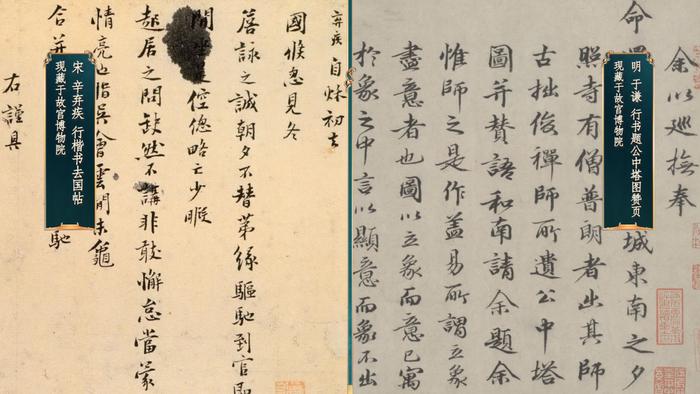 弃疾自秌初去
國倐忽見冬
詹詠之誠朝夕不替第緣驅馳到官即
坐是倥傯略亡少暇
起居之問缺然不講非敢懈怠當蒙
情亮也指吳會雲間未龜
合并
馳
右謹具
宋 辛弃疾 行楷书去国帖
现藏于故宫博物院
余以巡撫奉
命
城東南之夕
照寺有僧普朗者出其師
古拙俊禪師所遺公中塔
圖并贊語和南請余題余
惟師之是作蓋易所謂立象
盡意者也圖以立象而意已寓
於象之中言以顯意而象不出
明 于谦 行书题公中塔图赞页
现藏于故宫博物院